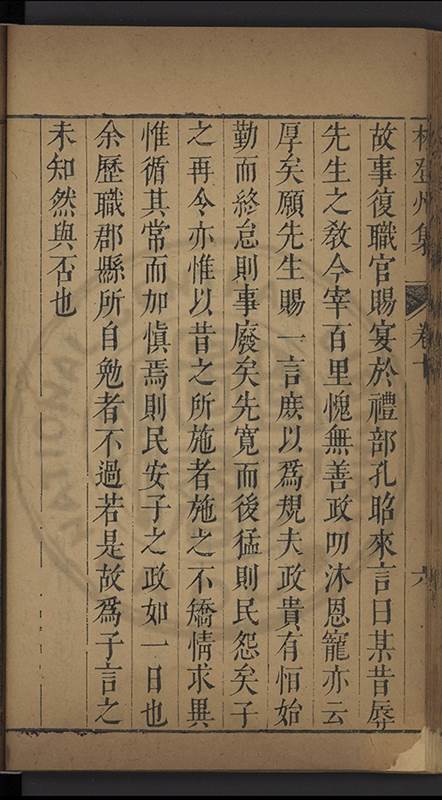 林登州集 卷十 六
故事復職官賜宴於禮部孔昭來言曰某昔辱
先生之教今宰百里愧無善政叨沐恩寵亦云
厚矣願先生賜一言庶以爲規夫政貴有恒始
勤而終怠則事廢矣先寬而後猛則民怨矣子
之再令亦惟以昔之所施者施之不矯情求異
惟循其常而加愼焉則民安子之政如一日也
余歷職郡縣所自勉者不過若是故爲子言之
未知然與否也